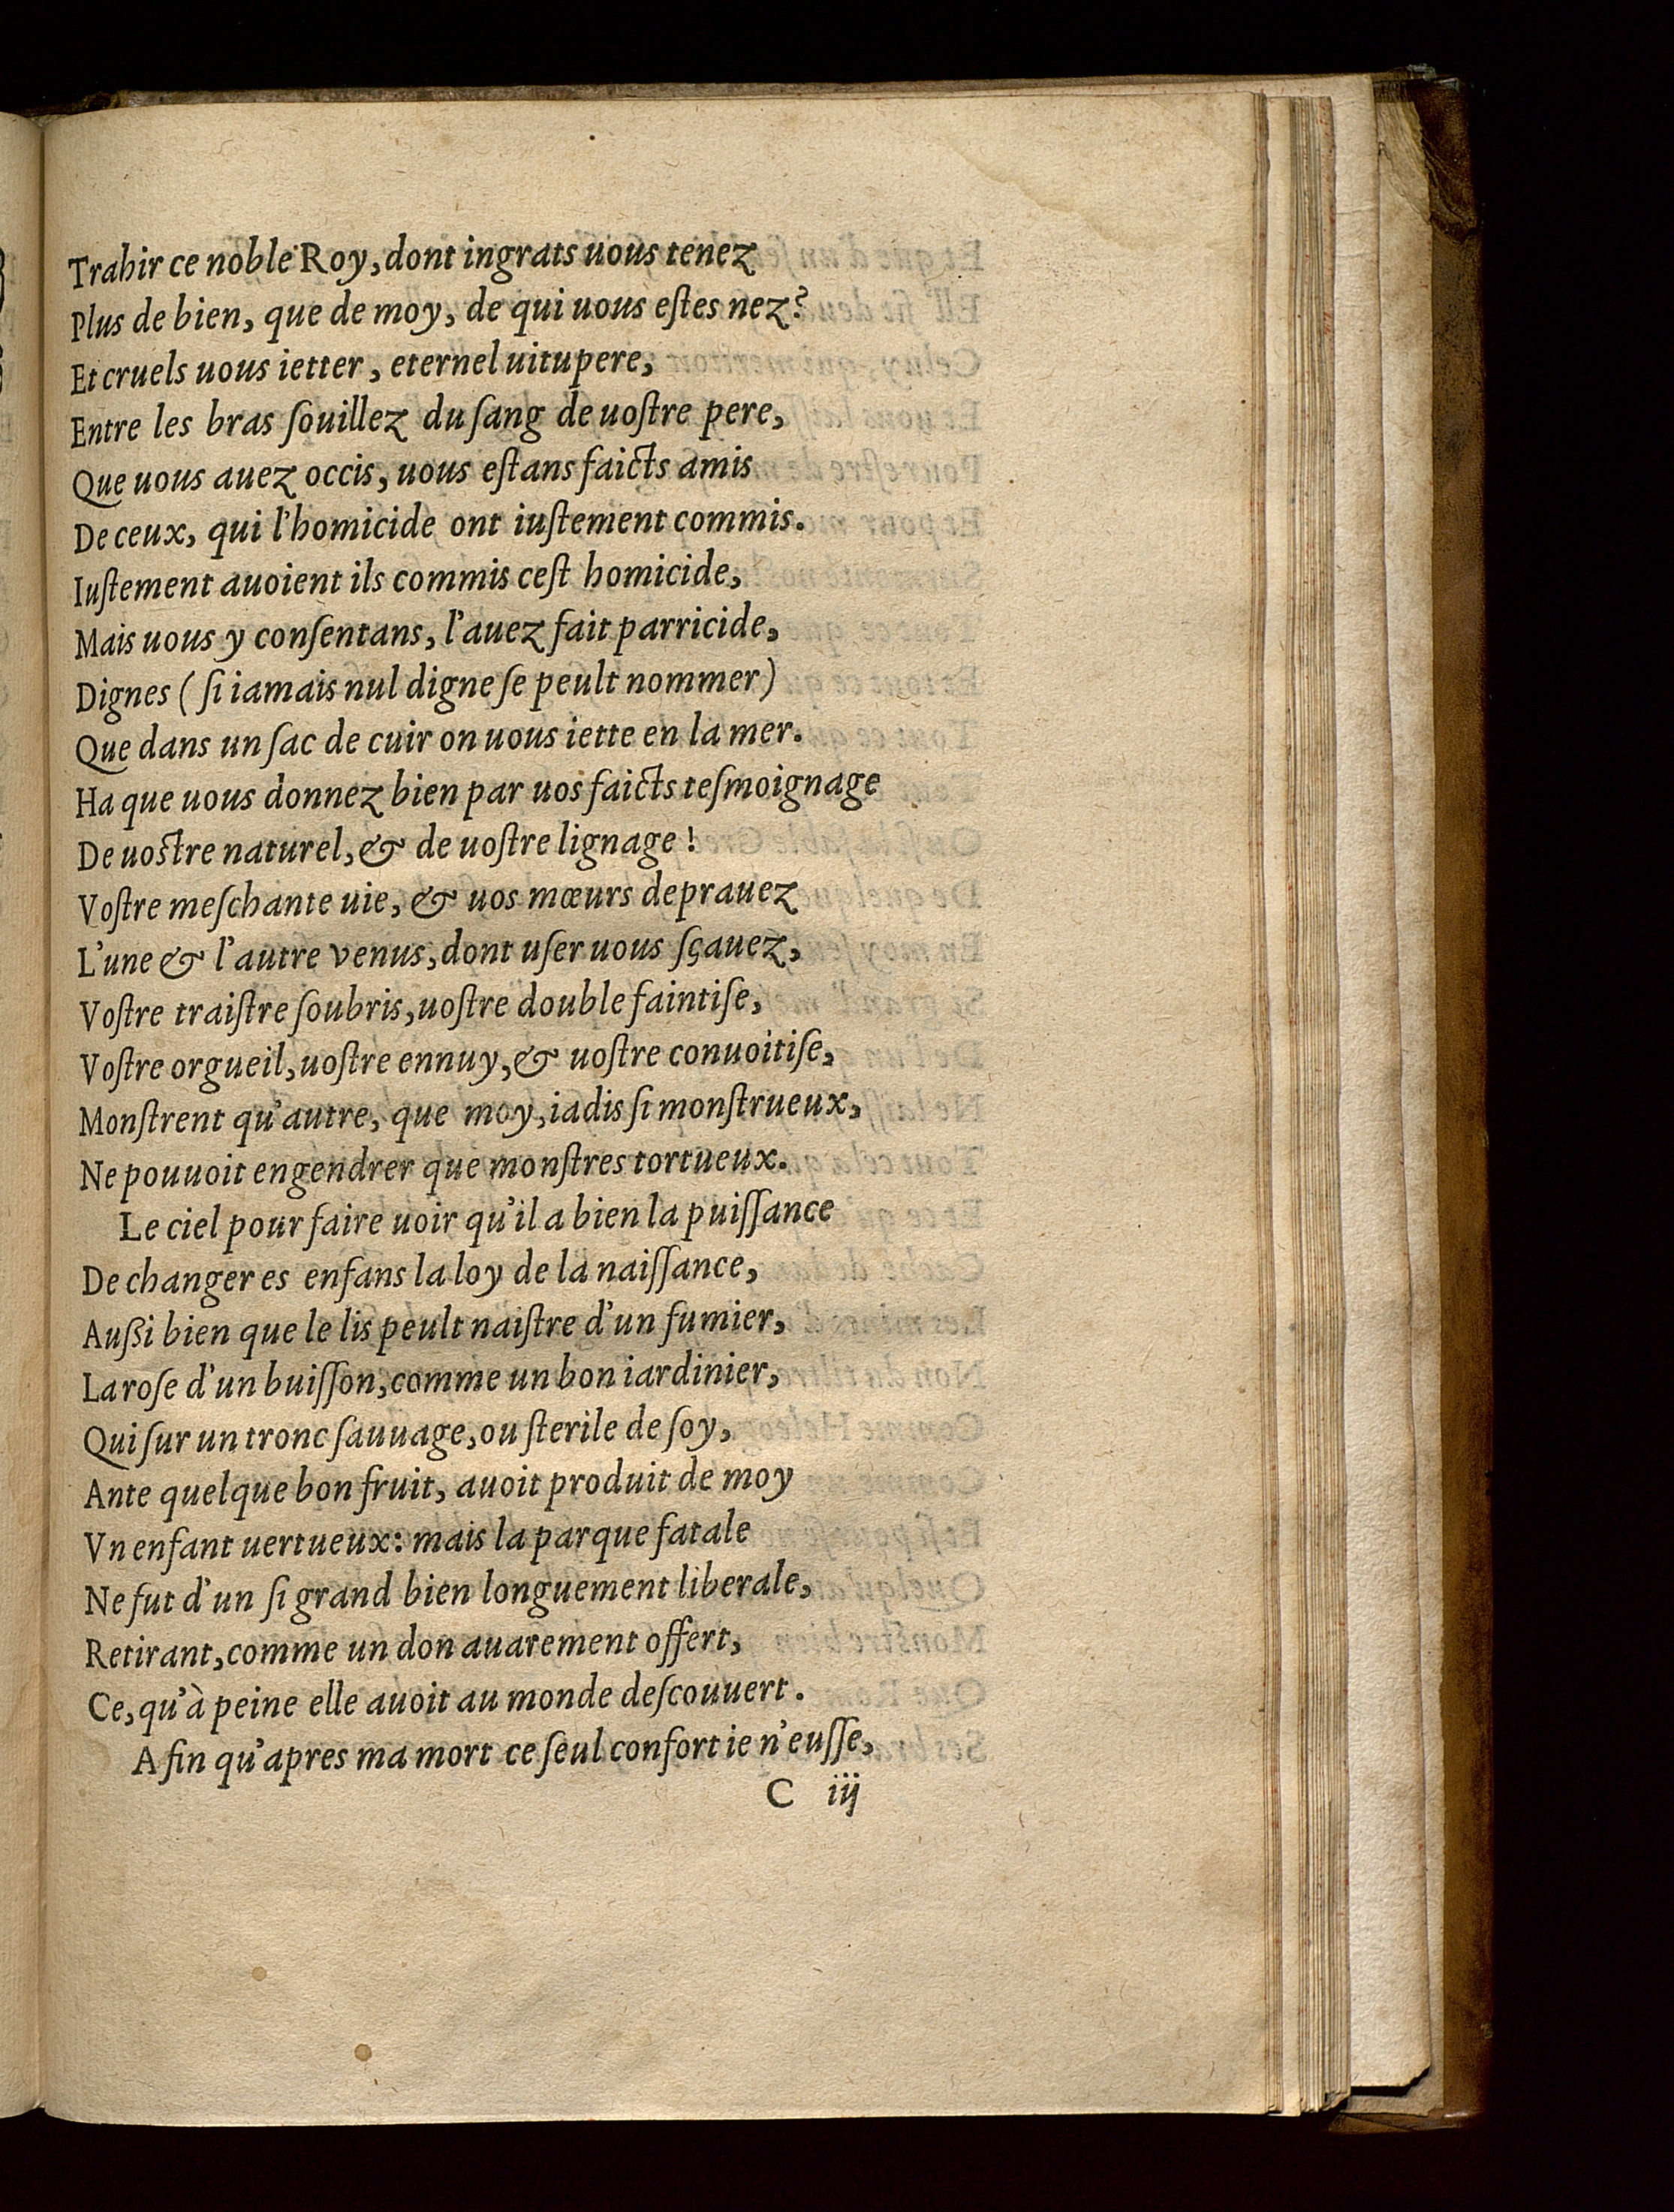 Trahir ce noble Roy, dont ingrats uous tenez
Plus de bien, que de moy, de qui uous eſtes nez?
Et cruels uous ietter, eternel uitupere,
Entre les bras ſouillez du ſang de uoſtre pere,
Que uous auez occis, uous eſtans faicts amis
De ceux, qui l'homicide ont iuſtement commis.
Iuſtement auoient ils commis ceſt homicide,
Mais uous y conſentans, l'auez fait parricide,
Dignes (ſi iamais nul digne ſe peult nommer)
Que dans un ſac de cuir on uous iette en la mer.
Ha que uous donnez bien par uos faicts teſmoignage
De uoſtre naturel, & de uoſtre lignage!
Voſtre meſchante uie, & uos mœurs deprauez
L'une & l'autre venus, dont uſer uous ſçauez,
Voſtre traiſtre ſoubris, uoſtre double faintiſe,
Voſtre orgueil, uoſtre ennuy, & uoſtre conuoitiſe,
Monſtrent qu'autre, que moy, iadis ſi monſtrueux,
Ne pouuoit engendrer que monſtres tortueux.
Le ciel pour faire uoir qu'il a bien la puiſſance
De changer es enfans la loy de la naiſſance,
Außi bien que le lis peult naiſtre d'un fumier,
La roſe d'un buiſſon, comme un bon iardinier,
Qui ſur un tronc ſauuage, ou ſterile de ſoy,
Ante quelque bon fruit, auoit produit de moy
Vn enfant uertueux: mais la parque fatale
Ne fut d'un ſi grand bien longuement liberale,
Retirant, comme un don auarement offert,
Ce, qu'à peine elle auoit au monde deſcouuert.
A fin qu'apres ma mort ce ſeul confort ie n'euſſe,
C iij